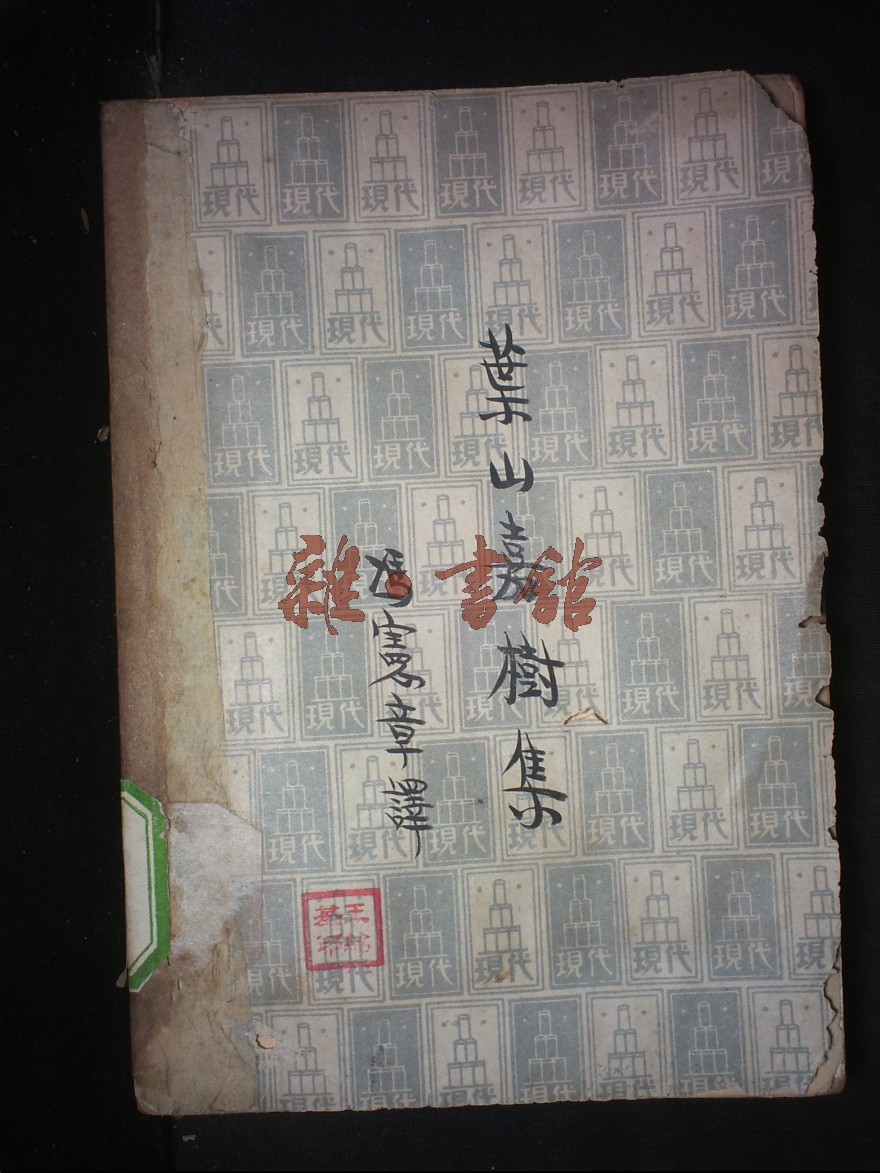 葉山嘉樹集
馮憲章譯
雜·書館
現代